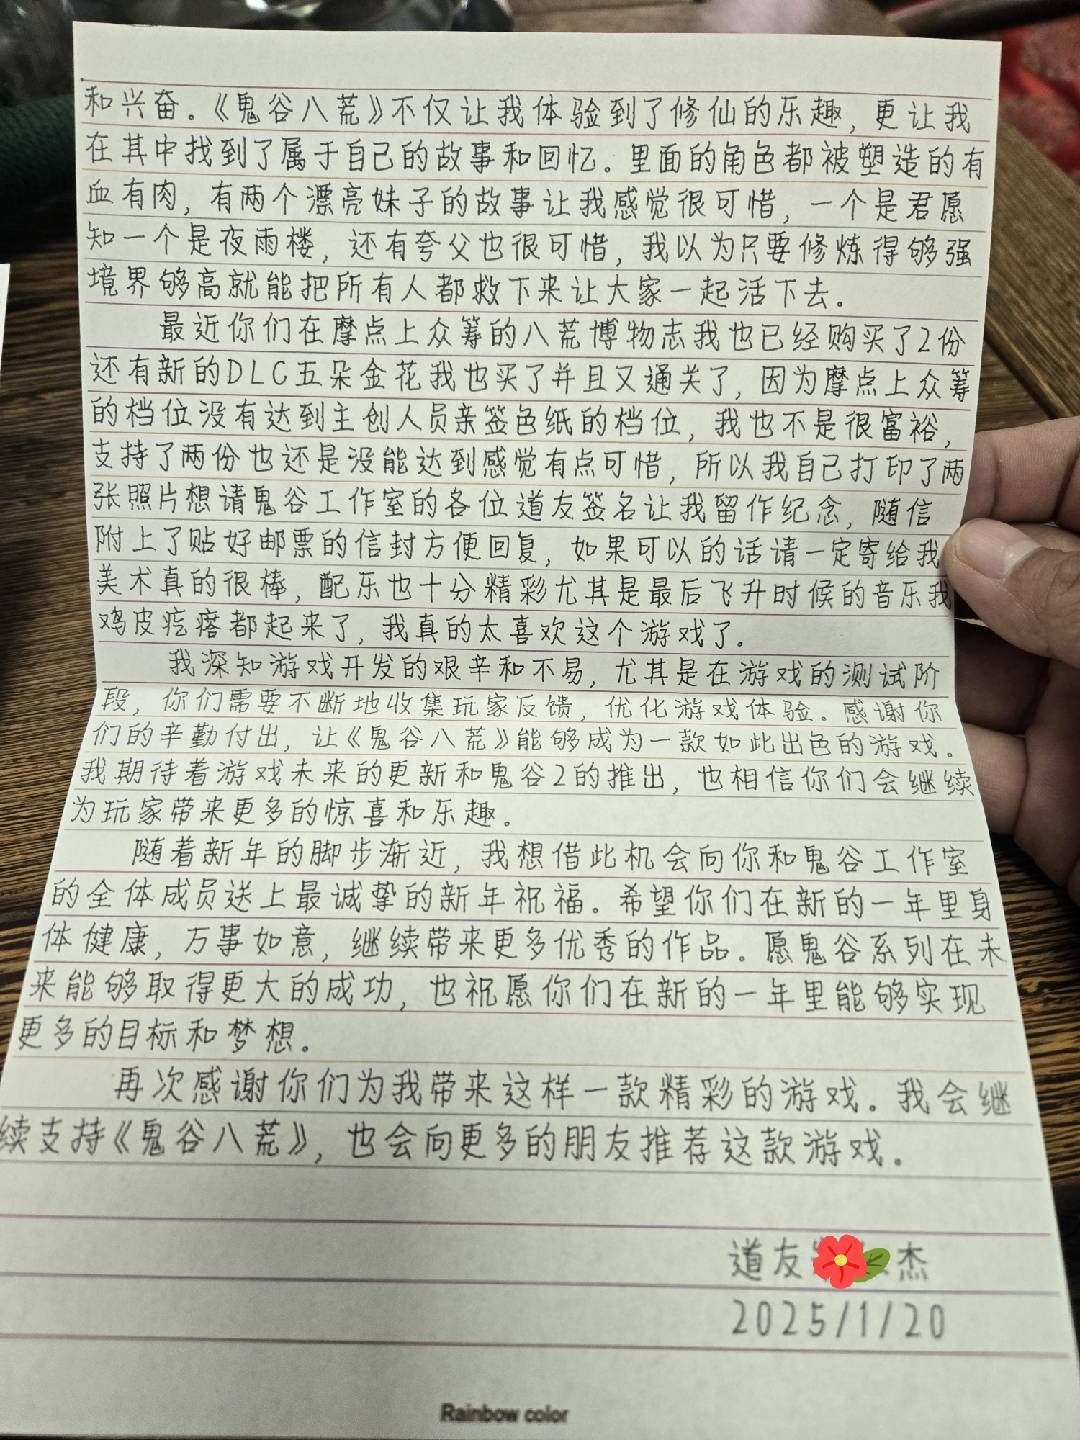 和兴奋。《鬼谷八荒》不仅让我体验到了修仙的乐趣，更让我
在其中找到了属于自己的故事和回忆。里面的角色都被塑造的有
血有肉，有两个漂亮妹子的故事让我感觉很可惜，一个是君愿
知一个是夜雨楼，还有夸父也很可惜，我以为只要修炼得够强
境界够高就能把所有人都救下来让大家一起活下去。
最近你们在摩点上众筹的八荒博物志我也已经购买了2份
还有新的DLC五朵金花我也买了并且又通关了，因为摩点上众筹
的档位没有达到主创人员亲签色纸的档位，我也不是很富裕，
支持了两份也还是没能达到感觉有点可惜，所以我自己打印了两
张照片想请鬼谷工作室的各位道友签名让我留作纪念，随信
附上了贴好邮票的信封方便回复，如果可以的话请一定寄给我
美术真的很棒，配乐也十分精彩尤其是最后飞升时候的音乐我
鸡皮疙瘩都起来了，我真的太喜欢这个游戏了。
我深知游戏开发的艰辛和不易，尤其是在游戏的测试阶
段，你们需要不断地收集玩家反馈，优化游戏体验。感谢你
们的辛勤付出，让《鬼谷八荒》能够成为一款如此出色的游戏。
我期待着游戏未来的更新和鬼谷2的推出，也相信你们会继续
为玩家带来更多的惊喜和乐趣。
随着新年的脚步渐近，我想借此机会向你和鬼谷工作室
的全体成员送上最诚挚的新年祝福。希望你们在新的一年里身
体健康，万事如意，继续带来更多优秀的作品。愿鬼谷系列在未
来能够取得更大的成功，也祝愿你们在新的一年里能够实现
更多的目标和梦想。
再次感谢你们为我带来这样一款精彩的游戏。我会继
续支持《鬼谷八荒》，也会向更多的朋友推荐这款游戏。
道友 杰
2025/1/20
Rainbow color